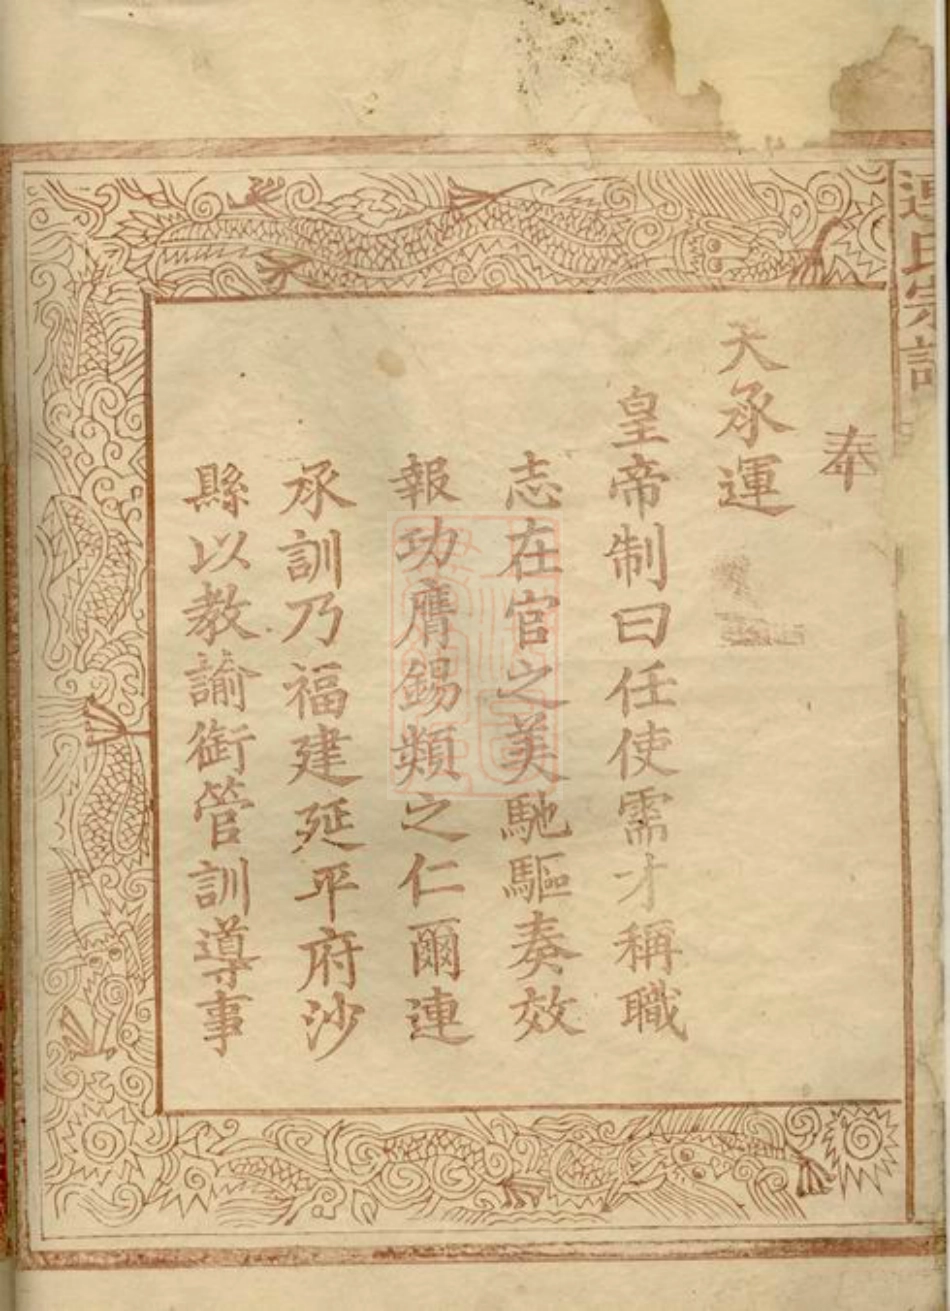 連氏宗譜
奉
天承運
皇帝制曰任使需才稱職
志在官之美馳驅奏效
報功膺錫類之仁爾連
承訓乃福建延平府沙
縣以教諭銜管訓導事